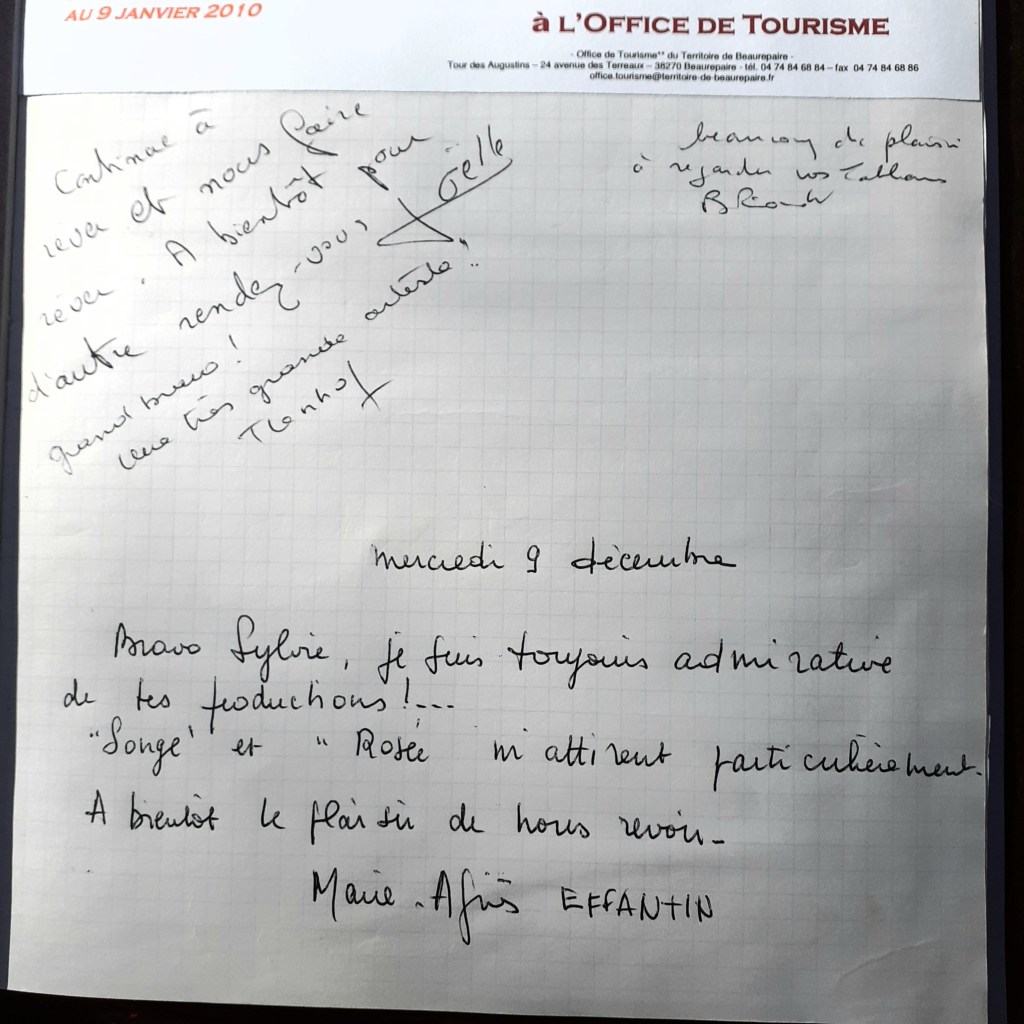 AU 9 JANVIER 2010
à L'OFFICE DE TOURISME
- Office de Tourisme** du Territoire de Beaurepaire -
Tour des Augustins – 24 avenue des Terreaux – 38270 Beaurepaire - tél. 04 74 84 68 84 – fax 04 74 84 68 86
office.tourisme@territoire-de-beaurepaire.fr
Continue à
rever et nous faire
réver. A bientôt pour
d'autre rendez-vous,
Gëlle
grand bravo !
une très grande artiste !
beaucoup de plaisir
à regarder vos tableaux
mercredi 9 décembre
Bravo Sylvie, je suis toujours admirative
de tes productions !...
"Songe" et " Rosée m'attirent particulièrement.
A bientôt le plaisir de nous revoir -
Marie-Agnès EFFANTIN